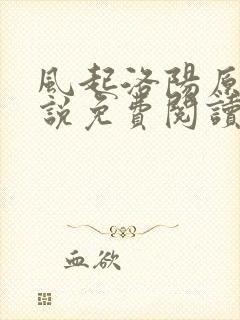 風起洛陽原
說免費閱讀
血欲